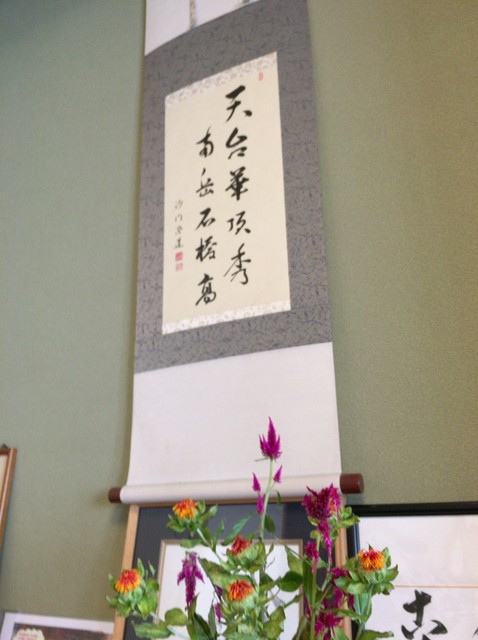 天台華頂秀
南岳石橋高
沙門